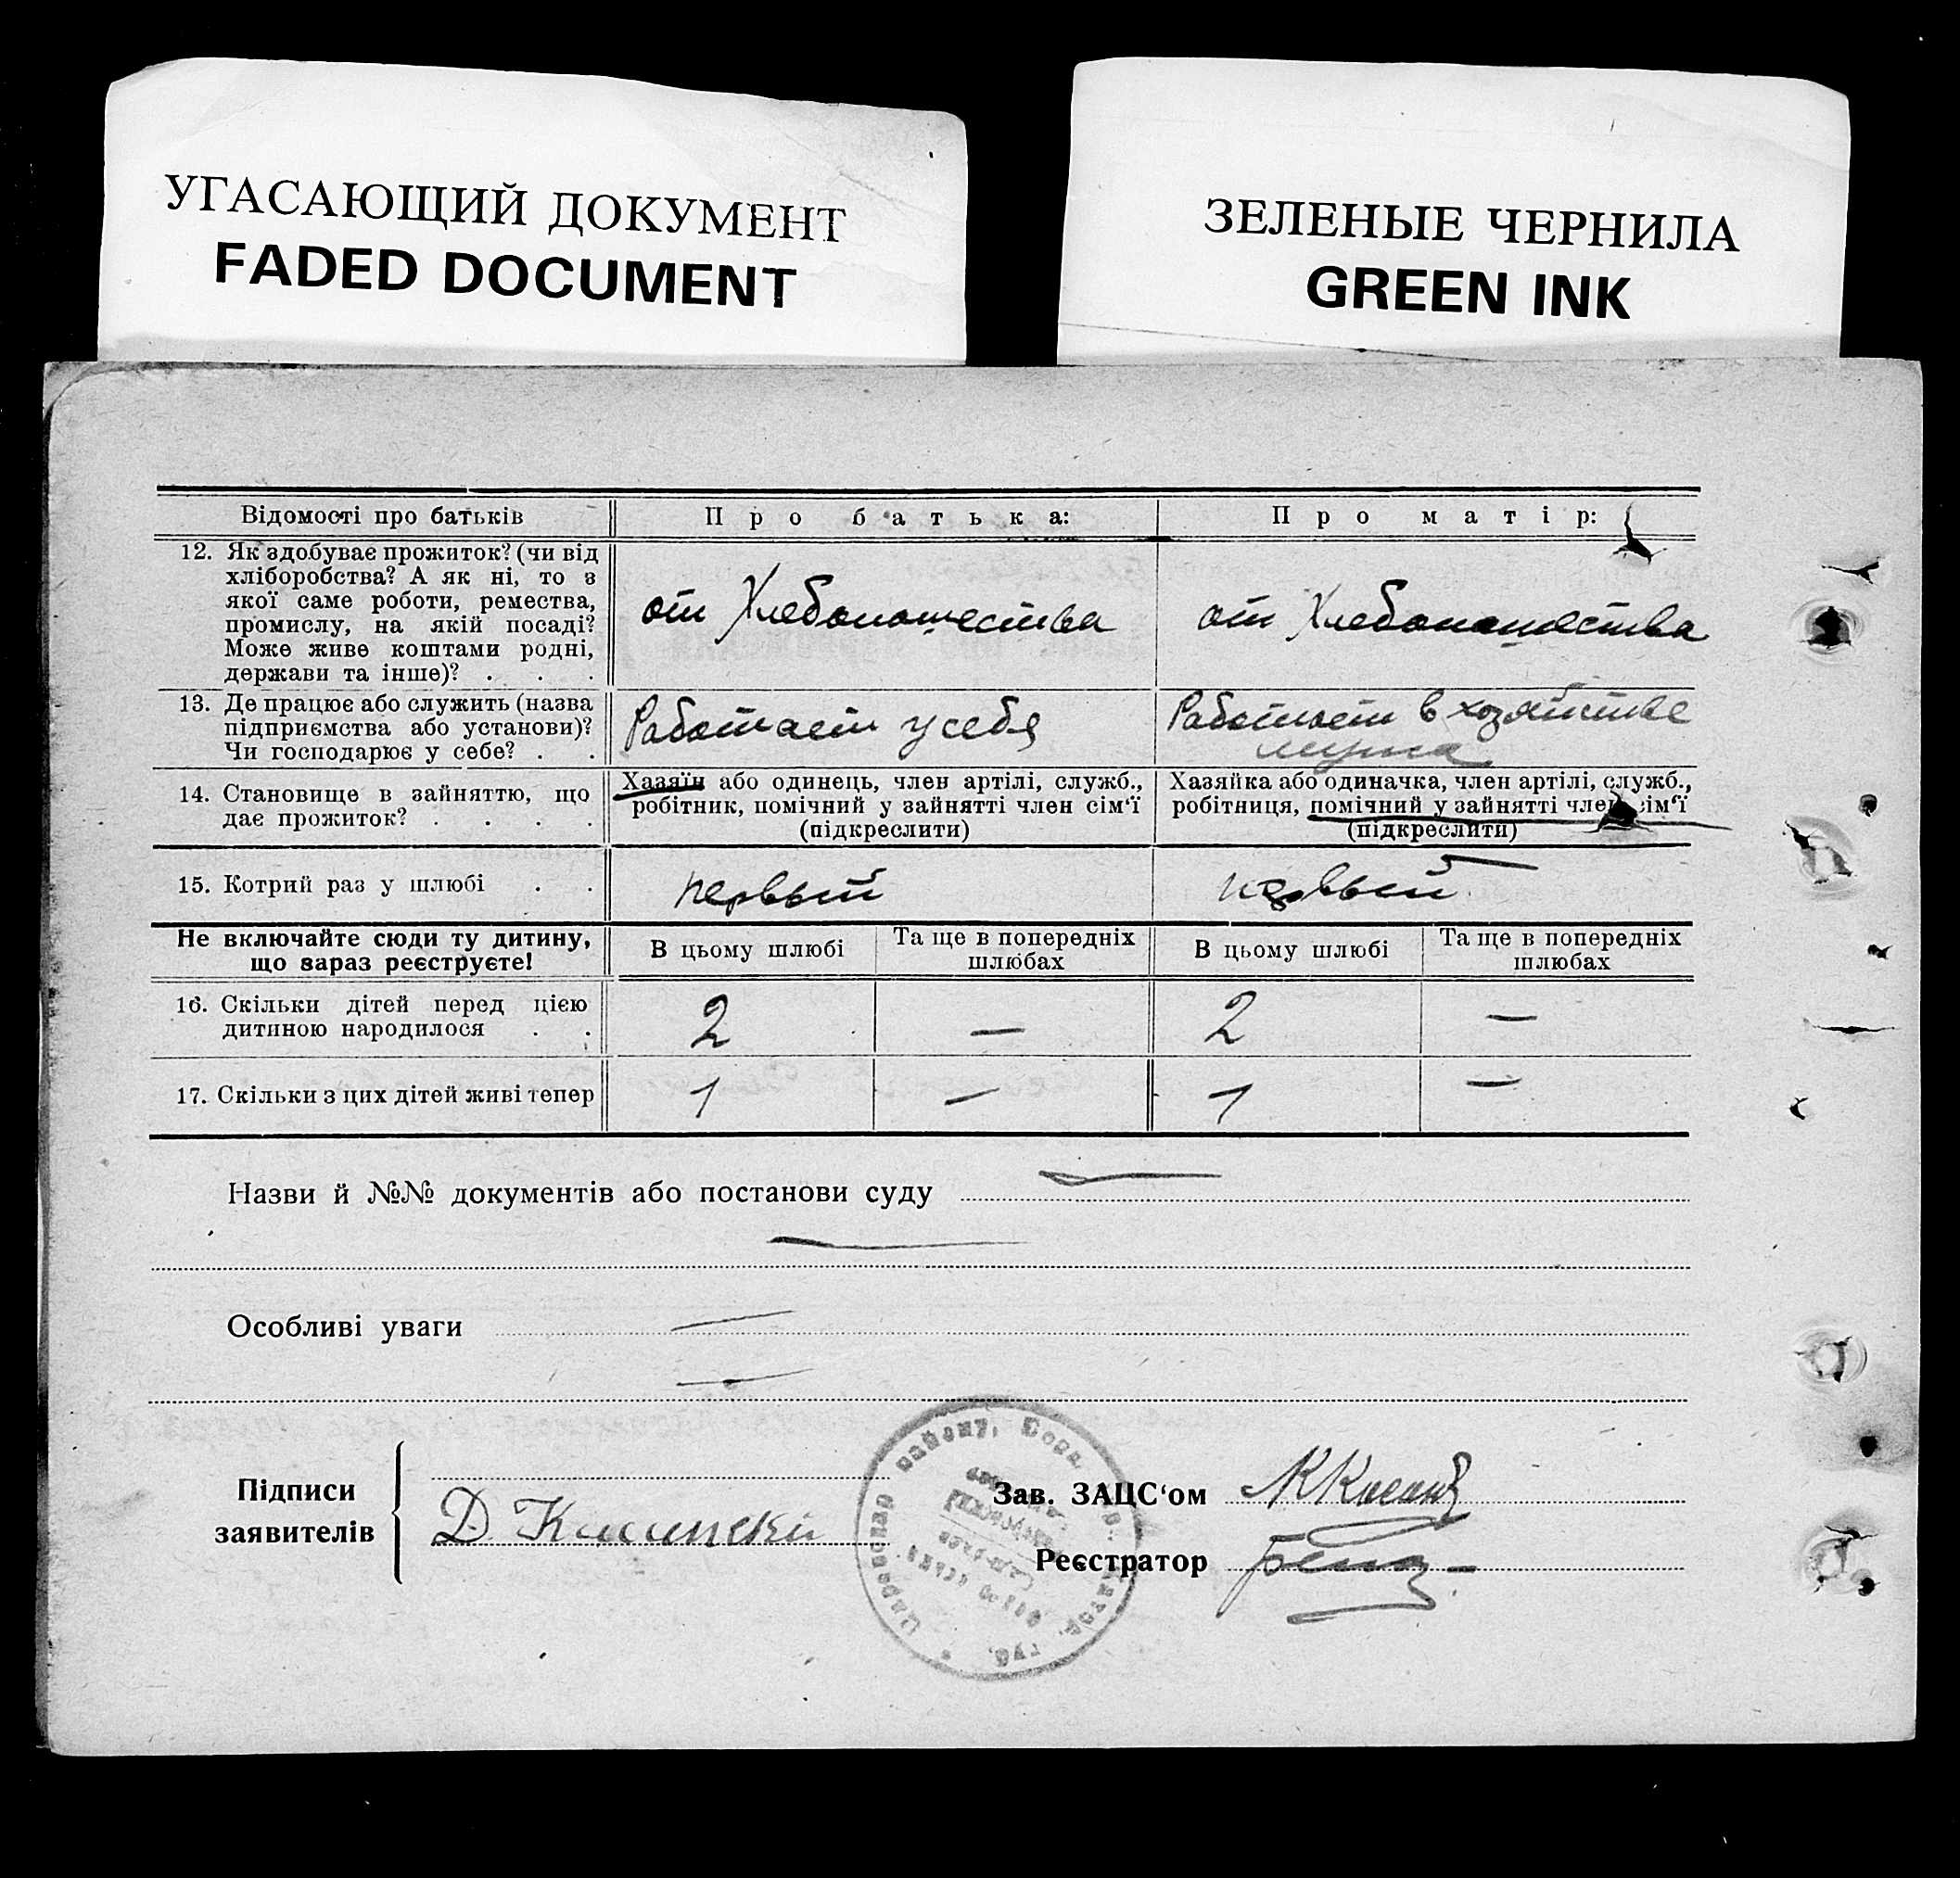 УГАСАЮЩИЙ ДОКУМЕНТ
FADED DOCUMENT
ЗЕЛЕНЫЕ ЧЕРНИЛА
GREEN INK
Відомості про батьків
Про батька:
Про матір:
12. Як здобуває прожиток? (чи від
хліборобства? А як ні, то з
якої саме роботи, ремества,
промислу, на якій посаді?
Може живе коштами родні,
держави та інше)? . . .
от Хлебопашества
от Хлебопашества
13. Де працює або служить (назва
підприємства або установи)?
Чи господарює у себе? . .
Работает у себя
Работает в хозяйстве
мужа
14. Становище в зайняттю, що
дає прожиток? . . . .
Хазяїн або одинець, член артілі, служб.,
робітник, помічний у зайнятті член сім‘ї
(підкреслити)
Хазяйка або одиначка, член артілі, служб.,
робітниця, помічний у зайнятті член сім‘ї
(підкреслити)
15. Котрий раз у шлюбі . .
первый
первый
Не включайте сюди ту дитину,
що зараз реєструєте!
В цьому шлюбі
Та ще в попередніх
шлюбах
В цьому шлюбі
Та ще в попередніх
шлюбах
16. Скільки дітей перед цією
дитиною народилося . .
2
—
2
—
17. Скільки з цих дітей живі тепер
1
—
1
—
Назви й №№ документів або постанови суду —
—
Особливі уваги —
—
Підписи
заявителів
Д.
району,
губ.
Зав. ЗАЦС‘ом
Реєстратор